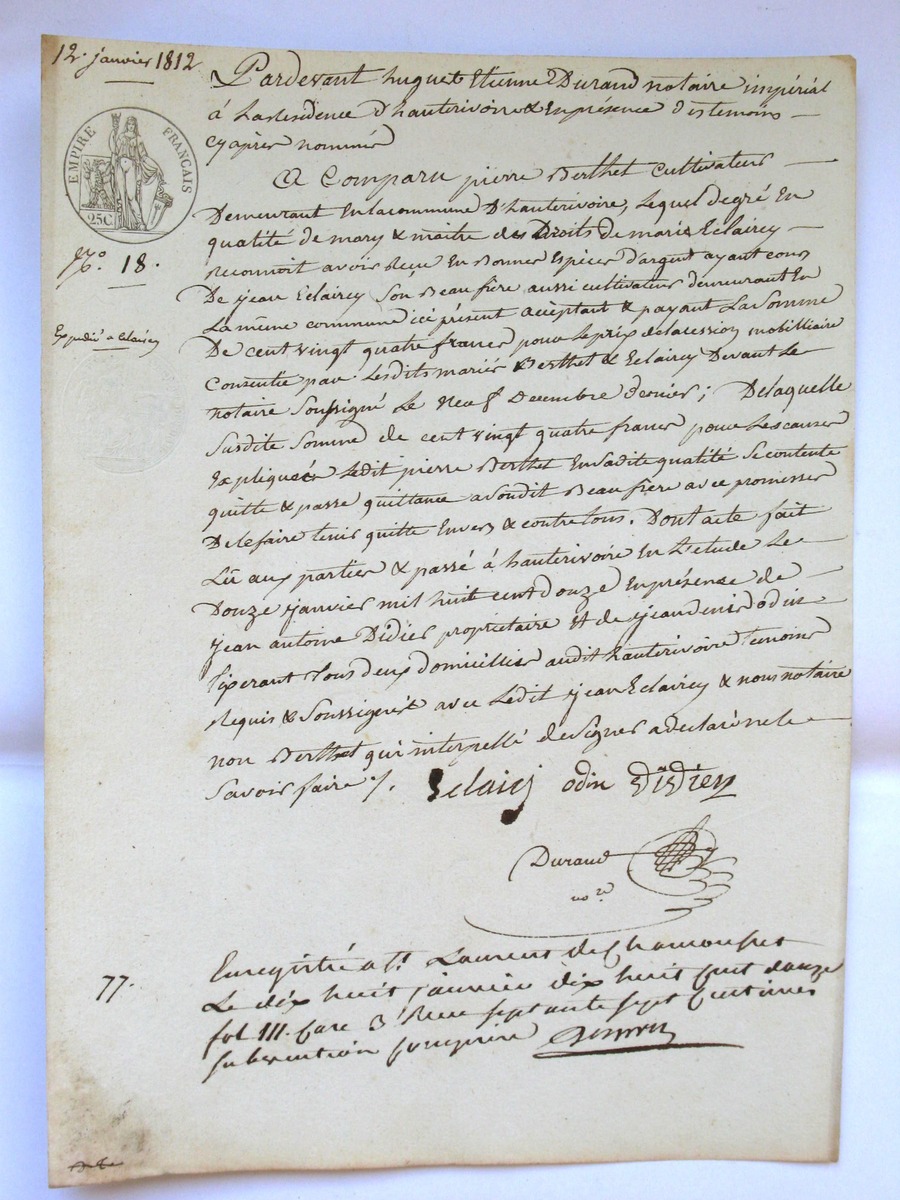 12. janvier 1812
EMPIRE FRANÇAIS
25C
N.o 18.
Expedié a Eclaircy
Pardevant hugues Etienne Durand notaire impérial
à la residence d'hauterivoire & En présence des temoins
cy après nommés
A Comparu pierre Berthet Cultivateur
Demeurant En la commune D'hauterivoire, Lequel de gré En
qualité de mary & maitre des Droits de marie Eclaircy
Reconnoit avoir Reçu En Bonnes Espèces D'argent ayant cours
De jean Eclaircy Son Beau frère aussi cultivateur demeurant En
La même commune ici présent acceptant & payant La Somme
De cent vingt quatre francs pour Le prix de la cession mobilliaire
Consentie par Lesdits mariés Berthet & Eclaircy Devant Le
notaire Soussigné Le Neuf Decembre Dernier; De laquelle
Susdite Somme de cent vingt quatre francs pour Les causes
Expliquées Ledit pierre Berthet En sadite qualité Se contente
quitte & passe quittance a Sondit Beau frère avec promesses
De le faire tenir quitte Envers & contre tous. Dont acte fait
Lû aux parties & passé à hauterivoire En L'etude Le
Douze janvier mil huit cent douze En présence de
jean antoine Didier propriétaire Et de jean denis odin
tixerant tous deux domicilliés audit hauterivoire temoins
Requis & Soussignés avec Ledit jean Eclaircy & nous notaire
non Berthet qui interpellé de signer a declaré ne le
Savoir faire /.
Eclaircy odin Didier
Durand
no.re
77.
Enregistré a St. Laurent de Chamousset
Le dix huit janvier dix huit cent douze
fol 111. Case 3e Reçu septante sept Centimes
subvention comprise